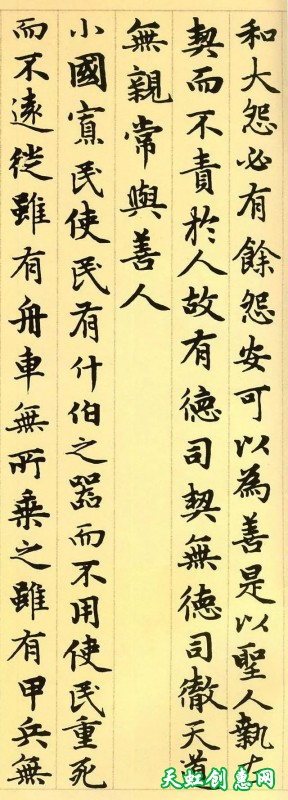 和大怨必有餘怨安可以為善是以聖人執左
契而不責於人故有德司契無德司徹天道
無親常與善人
小國寡民使民有什伯之器而不用使民重死
而不遠徙雖有舟車無所乘之雖有甲兵無
天虹创意网